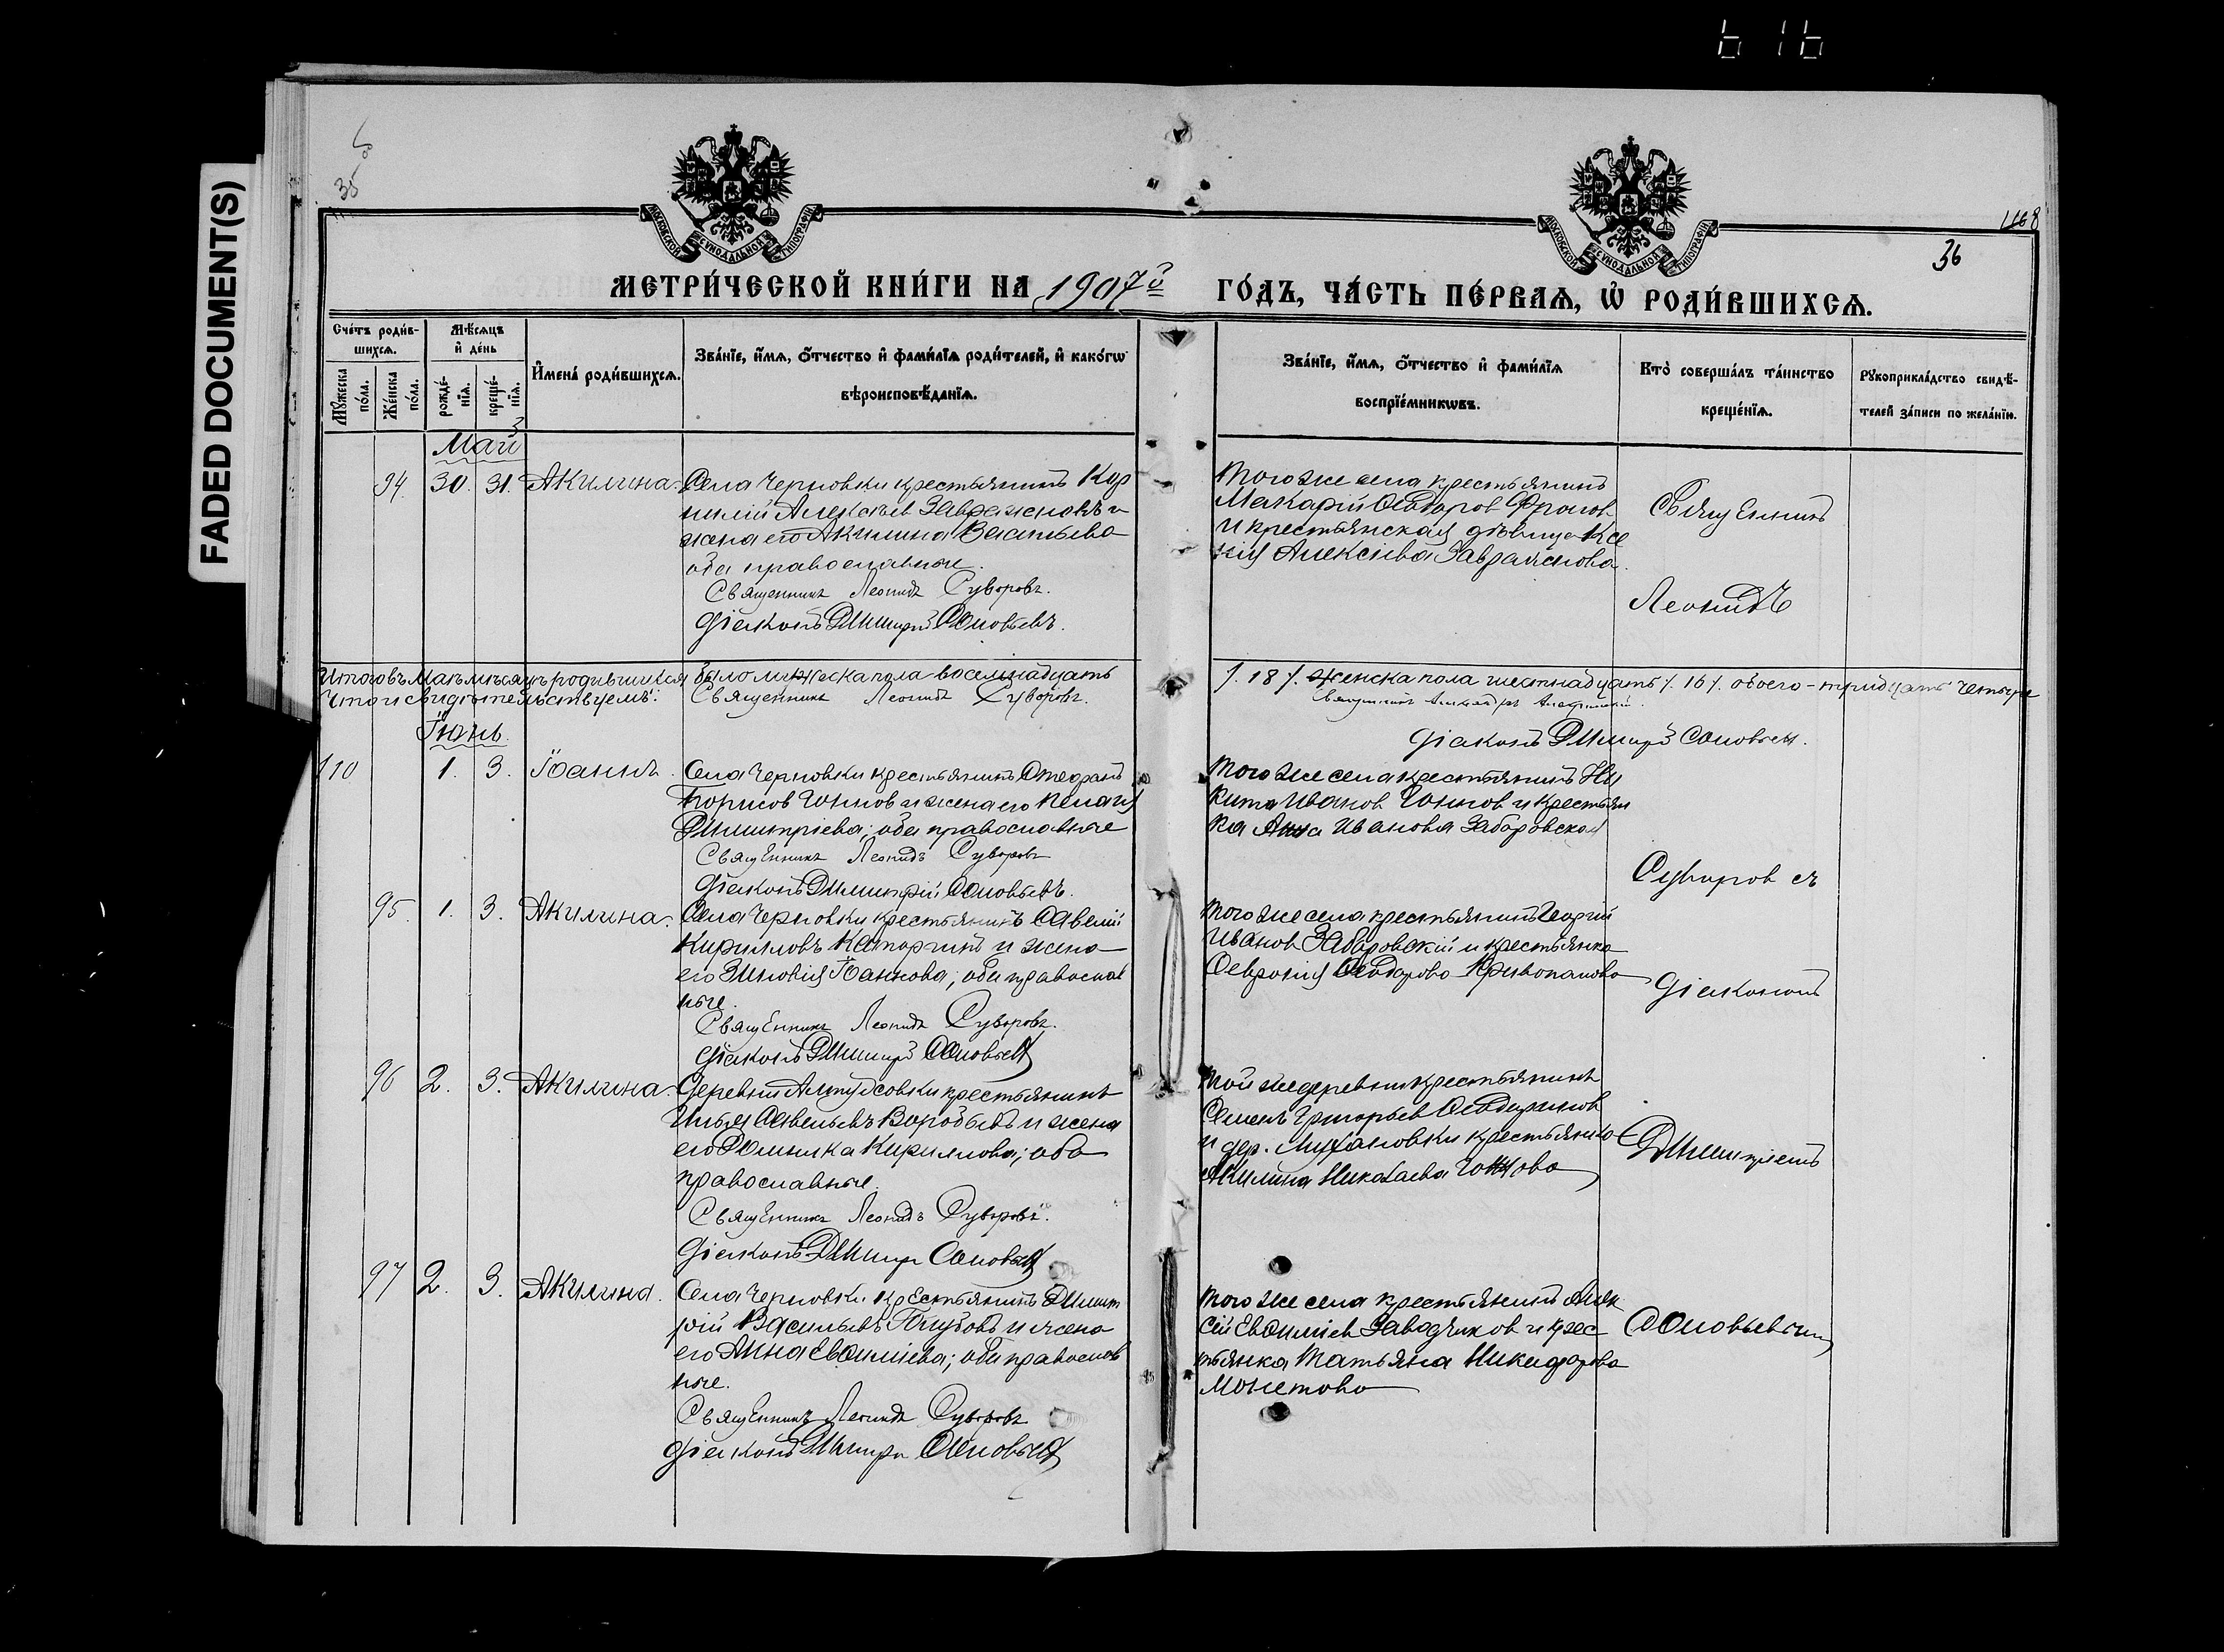 FADED DOCUMENT(S)
35
1168
36
МОСКОВСКОЙ СѴНОДАЛЬНОЙ ТИПОГРАФІИ
МОСКОВСКОЙ СѴНОДАЛЬНОЙ ТИПОГРАФІИ
МЕТРИ́ЧЕСКОЙ КНИ́ГИ НА 1907й ГО́ДЪ, ЧА́СТЬ ПЕ́РВАѦ, Ѡ҆ РОДИ́ВШИХСѦ.
Сче́тъ роди́в-
шихсѧ.
Мꙋ́жеска по́ла.
Же́нска по́ла.
Мѣ́сѧцъ и҆ де́нь
рожде́-нїѧ.
креще́-нїѧ.
И҆мена̀ роди́вшихсѧ.
Зва́нїе, и҆́мѧ, ѻ҆́тчество и҆ фами́лїѧ роди́телей, и҆ како́гѡ
вѣроисповѣ́данїѧ.
Зва́нїе, и҆́мѧ, ѻ҆́тчество и҆ фами́лїѧ
воспрїе́мникѡвъ.
Кто̀ соверша́лъ та́инство
креще́нїѧ.
Рꙋкоприкла́дство свидѣ́-
телей за́писи по жела́нїю.
Май
94. 30. 31. Акилина. Села Черновки крестьянинъ Кор
нилій Алексѣев Завражновъ и
жена его Акилина Васильева
оба православные.
Священникъ Леонидъ Суворовъ.
Діаконъ Димитрій Соловьевъ.
Того же села крестьянинъ
Макарій Ѳеодоров Фролов
и крестьянская дѣвица Ксе
нія Алексіева Завражнова.
Священникъ
Леонидъ
Итого въ Маѣ мѣсяцѣ родившихся было мужеска пола восемнадцать /. 18 /. женска пола шестнадцать /. 16 /. обоего - тридцать четыре
Что и свидѣтельствуемъ: Священникъ Леонидъ Суворовъ.
Священникъ Александръ
Діаконъ Димитрій Соловьевъ.
Іюнь.
110 1. 3. Іоаннъ. Села Черновки крестьянинъ Стефанъ
Борисов Гоннов и жена его Пелагія
Димитріева; оба православные
Священникъ Леонидъ Суворовъ
Діаконъ Димитрій Соловьевъ.
Того же села крестьянинъ Ни
кита Иванов Гоннов и крестьян
ка Анна Иванова Заборовская
Суворов съ
95. 1. 3. Акилина. Села Черновки крестьянинъ Савелій
Кирилловъ Каторгинъ и жена
его Зиновія Іоаннова; оба православ
ные.
Священникъ Леонидъ Суворовъ.
Діаконъ Димитрій Соловьевъ
Того же села крестьянинъ Георгій
Иванов Заборовскій и крестьянка
Февронія Ѳеодорова Кривопалова
Діакономъ
96 2. 3. Акилина. Деревни Алтусовки крестьянинъ
Илья Савельевъ Воробьевъ и жена
его Домника Кириллова; оба
православные.
Священникъ Леонидъ Суворовъ.
Діаконъ Димитр Соловьевъ
Той же деревни крестьянинъ
Семенъ Григорьев
и дер. крестьянка
Акилина Николаева Гоннова
Димитріемъ
97 2. 3. Акилина. Села Черновки крестьянинъ Димит
рій Васильевъ Голубовъ и жена
его Анна Евѳиміева; оба православ
ные.
Священникъ Леонидъ Суворовъ
Діаконъ Димитри Соловьевъ
Того же села крестьянинъ Алек
сій Евѳиміев Заводчиков и крес
тьянка Татьяна Никифорова
Монетова
Соловьевымъ